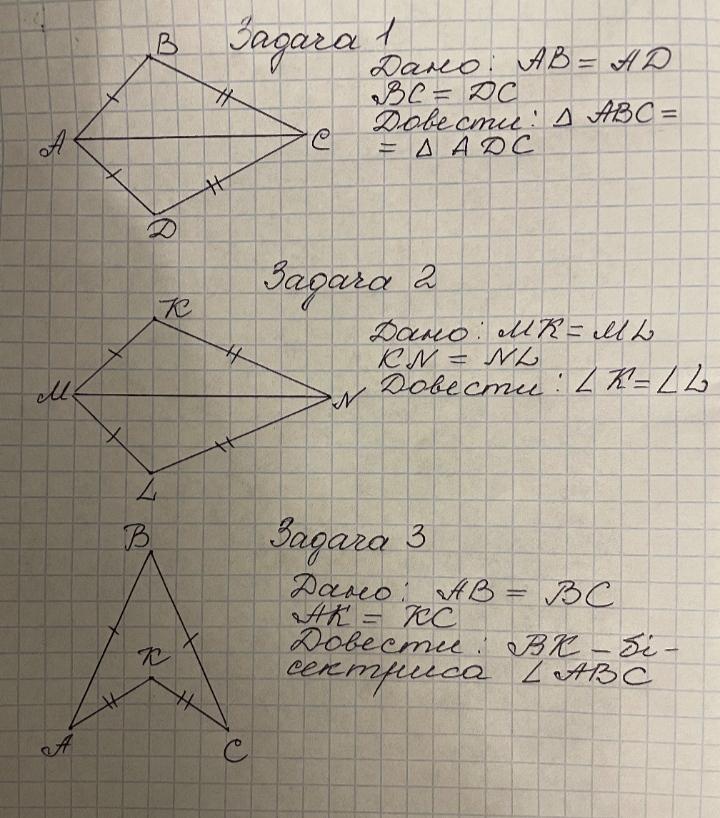 Задача 1
B
Дано: AB = AD
BC = DC
A
C
Довести: Δ ABC =
= Δ ADC
D
Задача 2
K
Дано: MK = ML
KN = NL
M
N
Довести: ∠K = ∠L
L
B
Задача 3
Дано: AB = BC
AK = KC
K
Довести: BK – бі-
сектриса ∠ABC
A
C